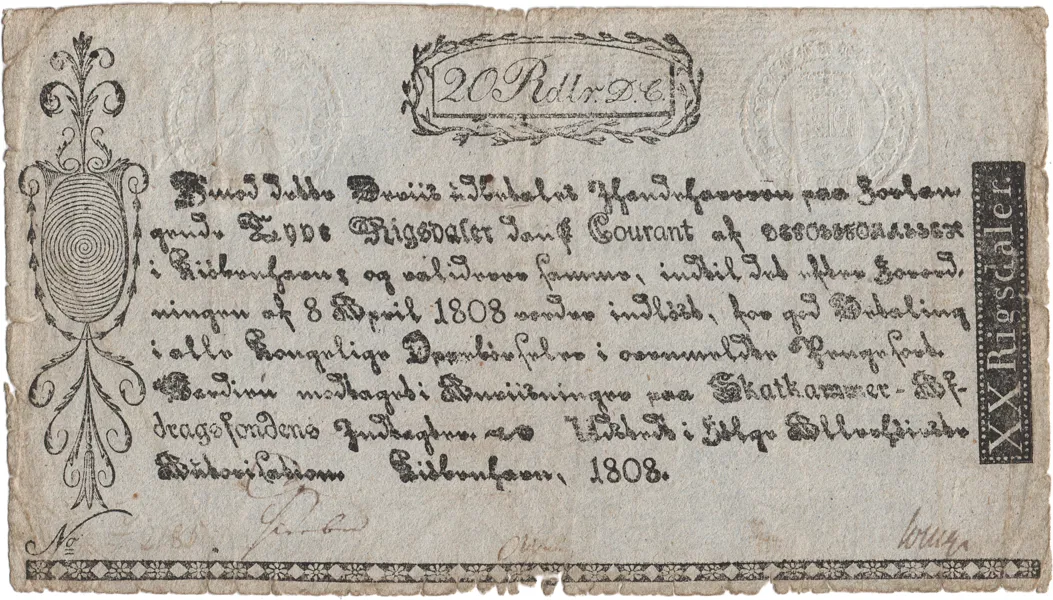 20 Rdlr. D. C.
Imod dette Beviis udbetales Ihændehaveren paa Forlan-
gende Tyve Rigsdaler dansk Courant af
i Kiöbenhavn; og validerer samme, indtil det efter Forord-
ningen af 8 April 1808 vorder indlöst, for god Betaling
i alle Kongelige Oppebörseler i ovenmeldte Pengesort.
Værdien modtaget i Anviisninger paa Skatkammer-Af-
dragsfondens Indtægter. Udstedt i Fölge Allerhöieste
Autorisation. Kiöbenhavn, 1808.
XX Rigsdaler.
No